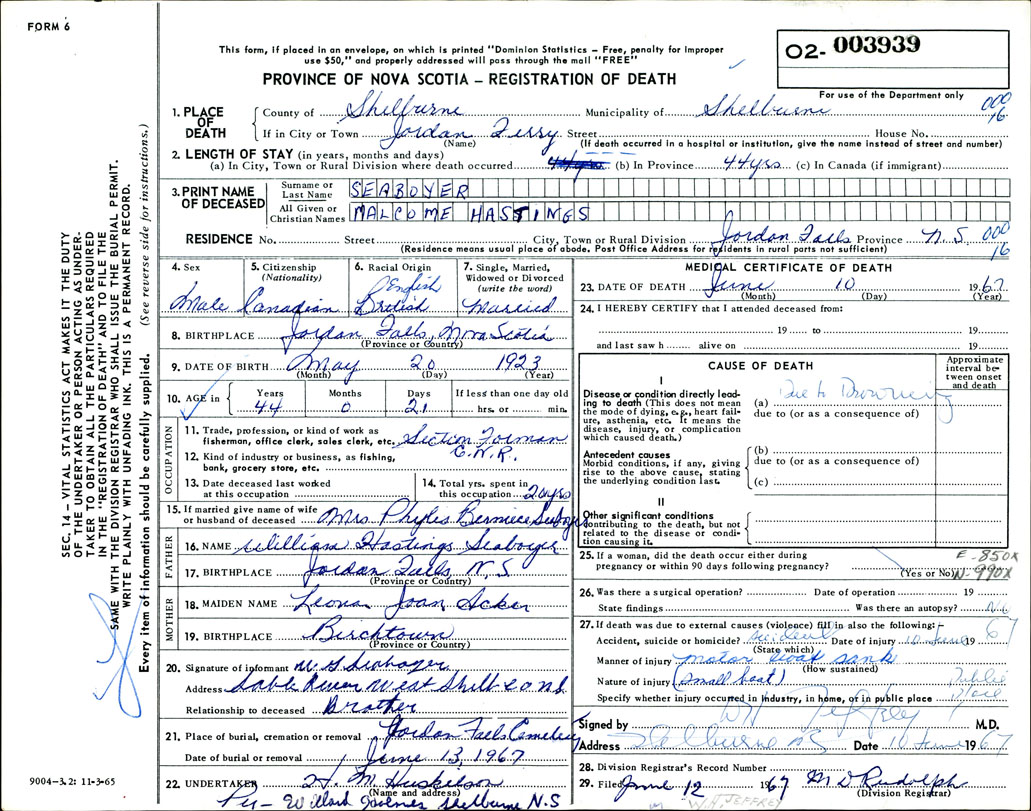 FORM 6
This form, if placed in an envelope, on which is printed "Dominion Statistics – Free, penalty for improper
use $50," and properly addressed will pass through the mail "FREE"
O2- 003939
PROVINCE OF NOVA SCOTIA – REGISTRATION OF DEATH
For use of the Department only
1. PLACE OF DEATH County of Shelburne Municipality of Shelburne 000 16
If in City or Town Jordan Ferry Street House No.
(Name) (If death occurred in a hospital or institution, give the name instead of street and number)
2. LENGTH OF STAY (in years, months and days)
(a) In City, Town or Rural Division where death occurred (b) In Province 44yrs (c) In Canada (if immigrant)
3. PRINT NAME OF DECEASED Surname or Last Name SEABOYER
All Given or Christian Names MALCOME HASTINGS
RESIDENCE No. Street City, Town or Rural Division Jordan Falls Province N.S. 000 16
(Residence means usual place of abode. Post Office Address for residents in rural parts not sufficient)
4. Sex 5. Citizenship (Nationality) 6. Racial Origin 7. Single, Married, Widowed or Divorced (write the word)
Male Canadian English British Married
8. BIRTHPLACE Jordan Falls, Nova Scotia
(Province or Country)
9. DATE OF BIRTH May 20 1923
(Month) (Day) (Year)
10. AGE in Years Months Days If less than one day old
44 0 21 hrs. or min.
OCCUPATION
11. Trade, profession, or kind of work as fisherman, office clerk, sales clerk, etc. Section Forman
C.N.R.
12. Kind of industry or business, as fishing, bank, grocery store, etc.
13. Date deceased last worked at this occupation
14. Total yrs. spent in this occupation 20yrs
15. If married give name of wife or husband of deceased Mrs Phyles Berniece Seaboyer
FATHER
16. NAME William Hastings Seaboyer
17. BIRTHPLACE Jordan Falls N.S.
(Province or Country)
MOTHER
18. MAIDEN NAME Leona Joan Acker
19. BIRTHPLACE Birchtown
(Province or Country)
20. Signature of informant W S Seaboyer
Address Sable River West Shelb Co N.S.
Relationship to deceased Brother
21. Place of burial, cremation or removal Jordan Falls Cemetery
Date of burial or removal June 13, 1967
22. UNDERTAKER H. M. Huskelson
(Name and address)
Per - Willard Holmes Shelburne N.S
MEDICAL CERTIFICATE OF DEATH
23. DATE OF DEATH June 10 1967
(Month) (Day) (Year)
24. I HEREBY CERTIFY that I attended deceased from:
19 to 19
and last saw h alive on 19
CAUSE OF DEATH
Approximate interval between onset and death
I
Disease or condition directly leading to death (This does not mean the mode of dying, e.g., heart failure, asthenia, etc. It means the disease, injury, or complication which caused death.)
(a) Due to Drowning
due to (or as a consequence of)
Antecedent causes
Morbid conditions, if any, giving rise to the above cause, stating the underlying condition last.
(b)
due to (or as a consequence of)
(c)
II
Other significant conditions
contributing to the death, but not related to the disease or condition causing it.
25. If a woman, did the death occur either during pregnancy or within 90 days following pregnancy? (Yes or No)
E-850X
N-990X
26. Was there a surgical operation? Date of operation 19
State findings Was there an autopsy? No
27. If death was due to external causes (violence) fill in also the following:-
Accident, suicide or homicide? accident Date of injury 10 June 1967
(State which)
Manner of injury motor boat sank
(How sustained)
Nature of injury (small boat)
Specify whether injury occurred in industry, in home, or in public place Public Place
Signed by W H Jeffrey M.D.
Address Shelburne NS Date 10 June 1967
28. Division Registrar's Record Number
29. Filed June 12 1967 M D Rudolph
(Division Registrar)
W.H. JEFFREY
9004-3.2: 11-3-65
SEC. 14 – VITAL STATISTICS ACT MAKES IT THE DUTY
OF THE UNDERTAKER OR PERSON ACTING AS UNDER-
TAKER TO OBTAIN ALL THE PARTICULARS REQUIRED
IN THE "REGISTRATION OF DEATH" AND TO FILE THE
SAME WITH THE DIVISION REGISTRAR WHO SHALL ISSUE THE BURIAL PERMIT.
WRITE PLAINLY WITH UNFADING INK. THIS IS A PERMANENT RECORD.
Every item of information should be carefully supplied. (See reverse side for instructions.)